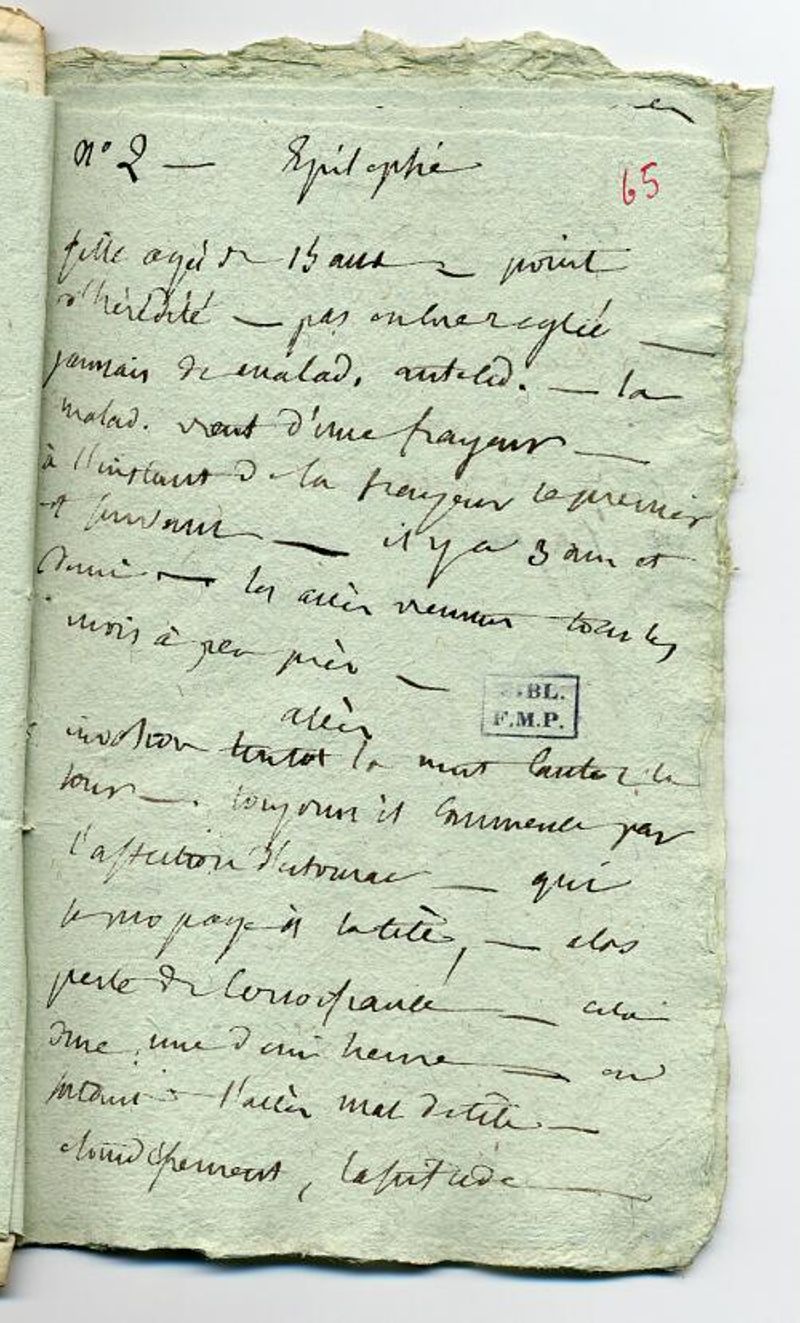 n° 2 — Epilepsie
65
fille agée de 15 ans — point
d'hérédité — pas encore reglée —
jamais de malad. antéced. — la
malad. vient d'une frayeur —
à l'instant de la frayeur le premier
et suivant — il y a 3 ans et
demi — les accès viennent tous les
mois à peu près —
BIBL.
F.M.P.
accès
invasion tantot la nuit tantot le
jour —. toujours il commence par
l'affection d'estomac — qui
se propage à la tète, — alors
perte de connoissance — cela
dure une demi heure — on
l'accès mal de tète —
etourdissement, lassitude —